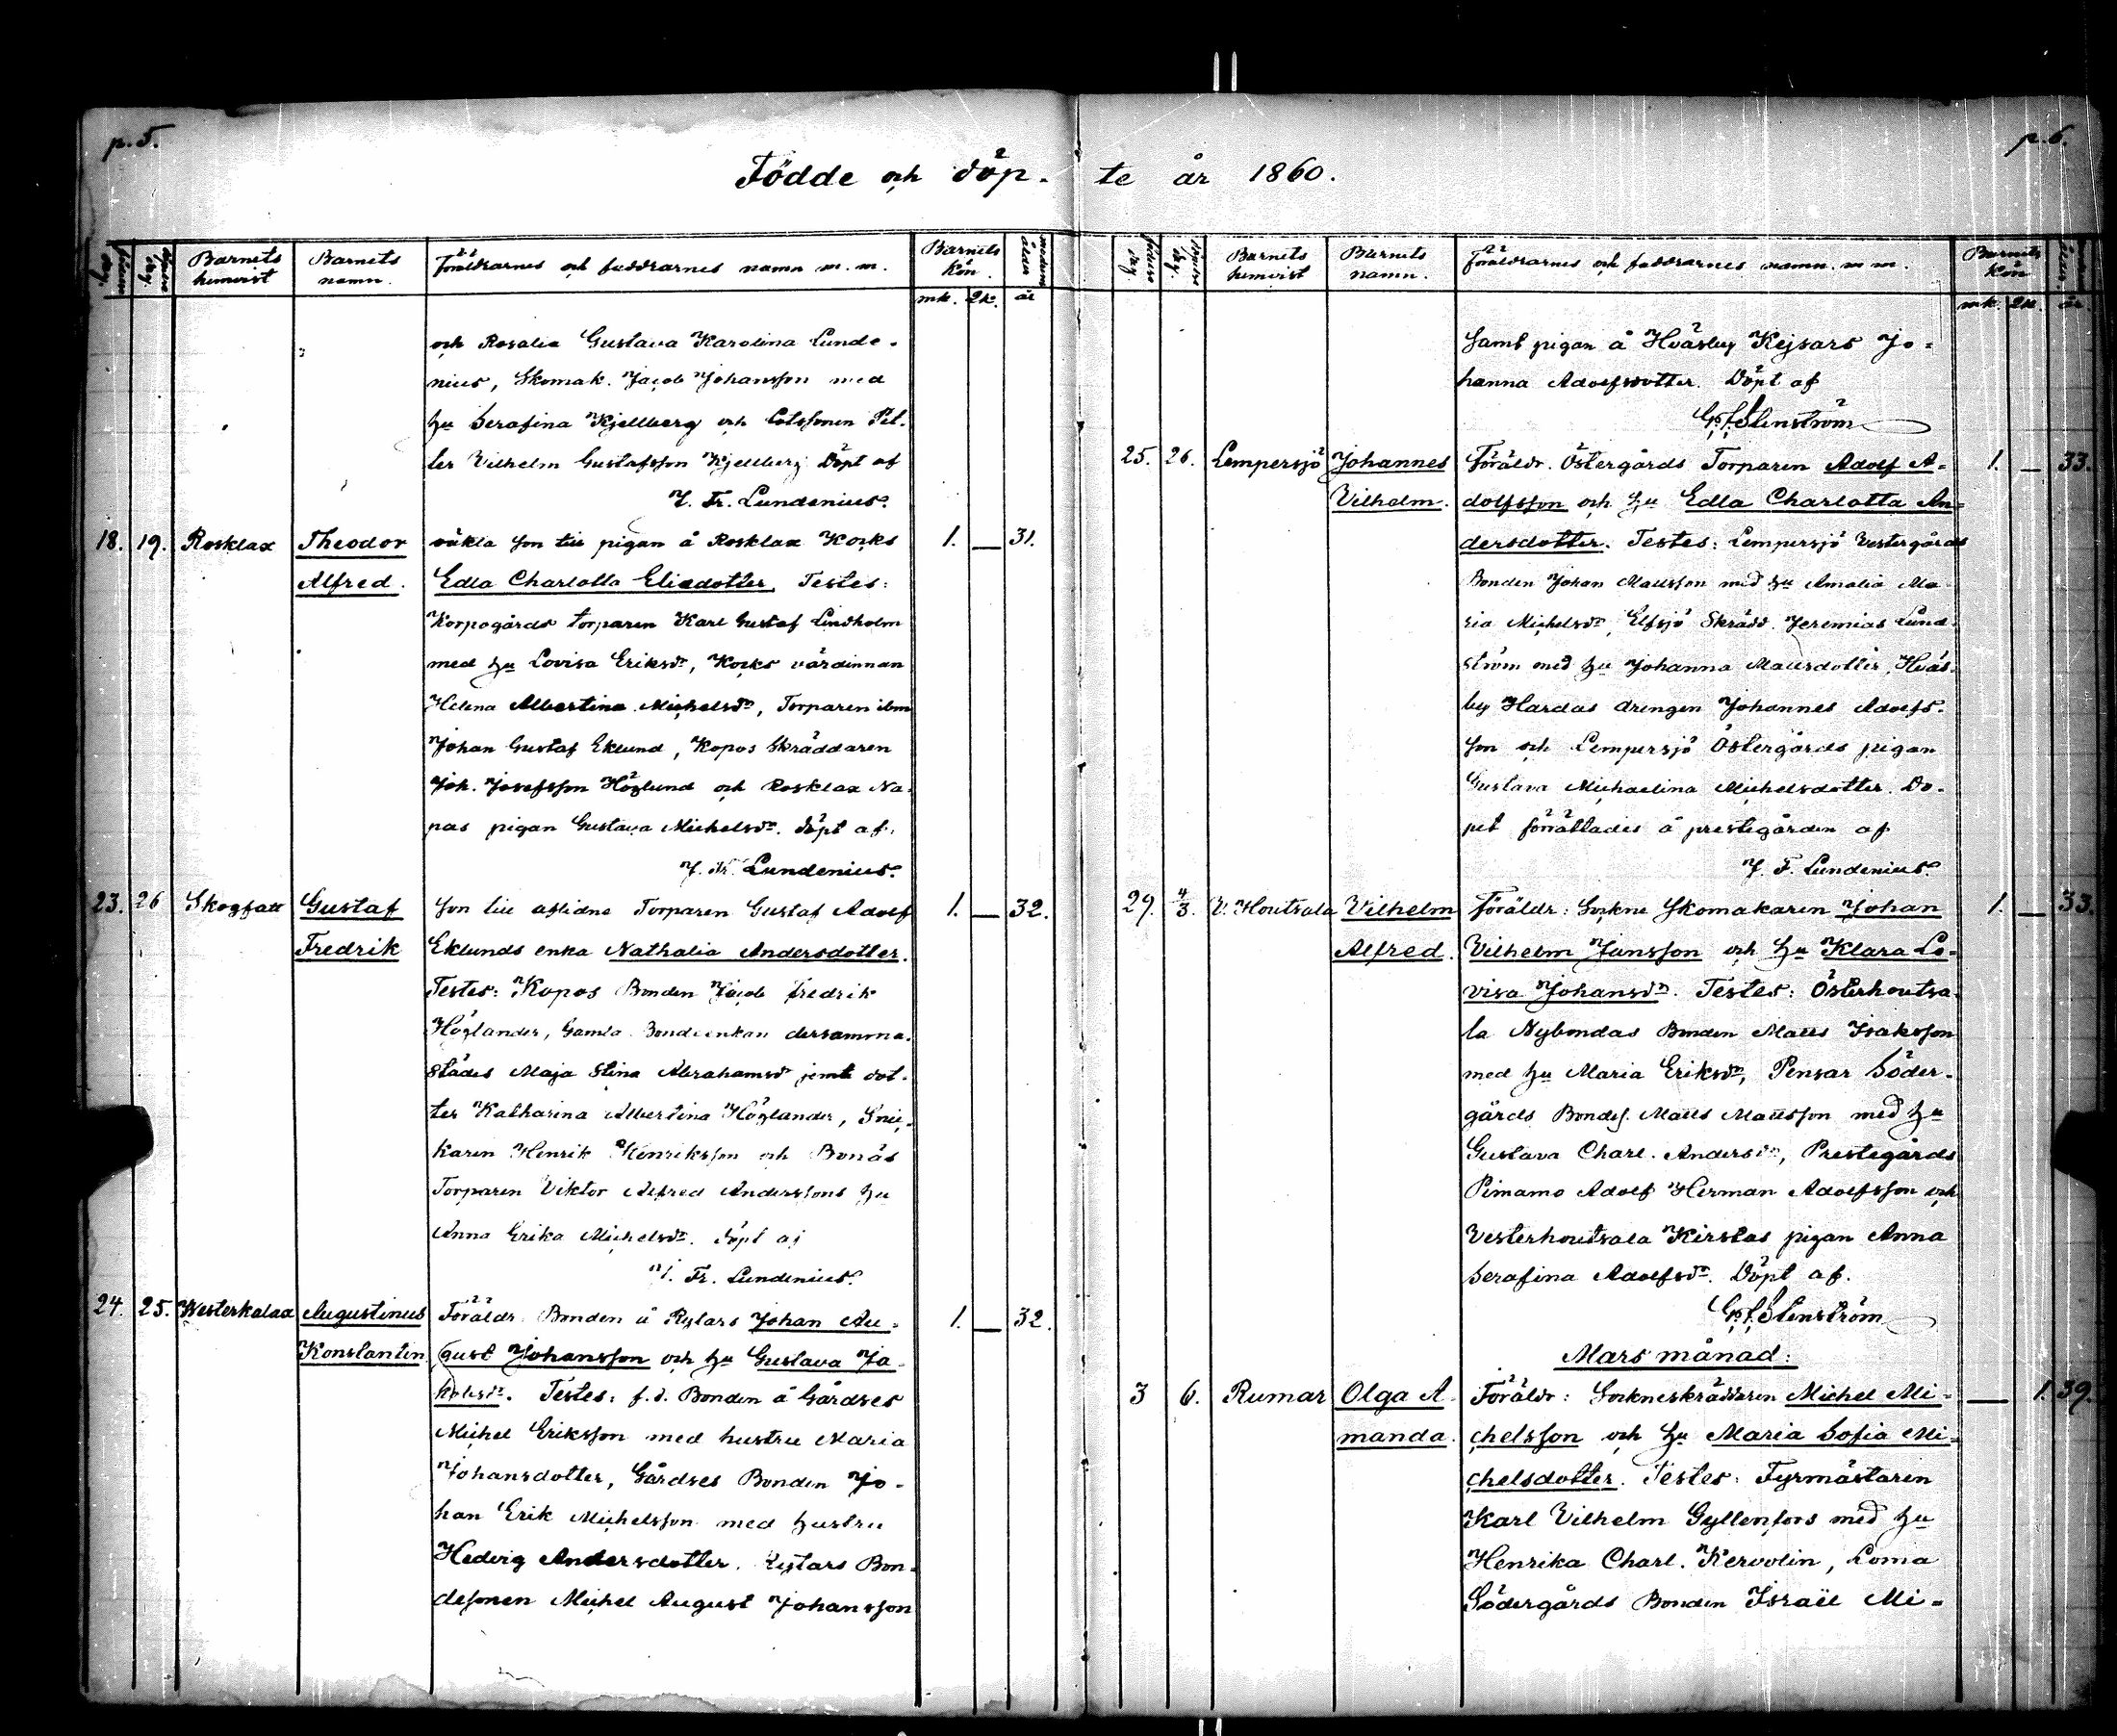 p. 5.
p. 6.
Födde och döp-te år 1860.
Barnets hemvist
Barnets namn.
Föräldrarnes och faddrarnes namn m. m.
Barnets Kön.
mk. qk. år
och Rosalia Gustava Karolina Lunde-
nius, Skomak. Jacob Johansson med
hu Serafina Kjellberg och Lotssonen Pet-
ter Vilhelm Gustafsson Kjellberg Döpt af
J. Fr. Lundenius.
18. 19. Rosklax Theodor oäkta son till pigan å Rosklax Korks 1. — 31.
Alfred. Edla Charlotta Eliedotter. Testes:
Korpogårds torparen Karl Gustaf Lindholm
med hu Lovisa Eriksdr, Korks värdinnan
Helena Albertina Michelsdr, Torparen ibm
Johan Gustaf Eklund, Kopos Skräddaren
Joh. Josefsson Höglund och Rosklax Na-
pas pigan Gustava Michelsdr. döpt af.
J. Fr. Lundenius.
23. 26 Skogfatt Gustaf Son till aflidne Torparen Gustaf Adolf 1. — 32.
Fredrik Eklunds enka Nathalia Andersdotter.
Testes: Kopos Bonden Jacob fredrik
Höglander, Gamla Bondeenkan dersamma-
städes Maja Stina Abrahamsdr jemte dot-
ter Katharina Albertina Höglander, Snic-
karen Henrik Henriksson och Bonäs
Torparen Viktor Alfred Anderssons hu
Anna Erika Michelsdr. Döpt af
J. Fr. Lundenius.
24. 25. Westerkalax Augustinus Föräldr. Bonden å Rystars Johan Au- 1. — 32.
Konstantin gust Johansson och hu Gustava Ja-
kobsdr. Testes: f. d. Bonden å Gårdses
Michel Eriksson med hustru Maria
Johansdotter, Gårdses Bonden Jo-
han Erik Michelsson med hustru
Hedvig Andersdotter. Rystars Bon-
desonen Michel August Johansson
Barnets hemvist
Barnets namn.
Föräldrarnes och faddrarnes namn. m m.
Barnets Kön
mk. qk. år
samt pigan å Hväsby Kejsars Jo-
hanna Adolfsdotter. Döpt af
G. F. Stenström
25. 26. Lempersjö Johannes Föräldr. Östergårds Torparen Adolf A- 1. — 33.
Vilhelm. dolfsson och hu Edla Charlotta An-
dersdotter. Testes: Lempersjö Vestergårds
Bonden Johan Mattsson med hu Amalia Ma-
ria Michelsdr, Elfsjö Skrädd. Jeremias Lund-
ström med hu Johanna Mattsdotter, Hväs-
by Hardas drengen Johannes Adolfs-
son och Lempersjö Östergårds pigan
Gustava Michaelina Michelsdotter. Do-
pet förrättades å prestegården af
J. F. Lundenius.
29. 4/3. V. Houtsala Vilhelm Föräldr: Sockne Skomakaren Johan 1. — 33.
Alfred. Vilhelm Jansson och hu Klara Lo-
visa Johansdr. Testes: Österhoutsa-
la Nybondas Bonden Matts Isaksson
med hu Maria Eriksdr, Pensar Söder-
gårds Bondes. Matts Mattsson med hu
Gustava Charl. Andersdr, Prestegårds
Pimamo Adolf Herman Adolfsson och
Vesterhoutsala Kirstas pigan Anna
Serafina Adolfsdr. Döpt af.
G. F. Stenström
Mars månad:
3 6. Rumar Olga A- Föräldr: Sockneskräddaren Michel Mi- — 1. 39.
manda. chelsson och hu Maria Sofia Mi-
chelsdotter. Testes: Fyrmästaren
Karl Vilhelm Gyllenfors med hu
Henrika Charl. Kervolin, Loma
Södergårds Bonden Israël Mi-